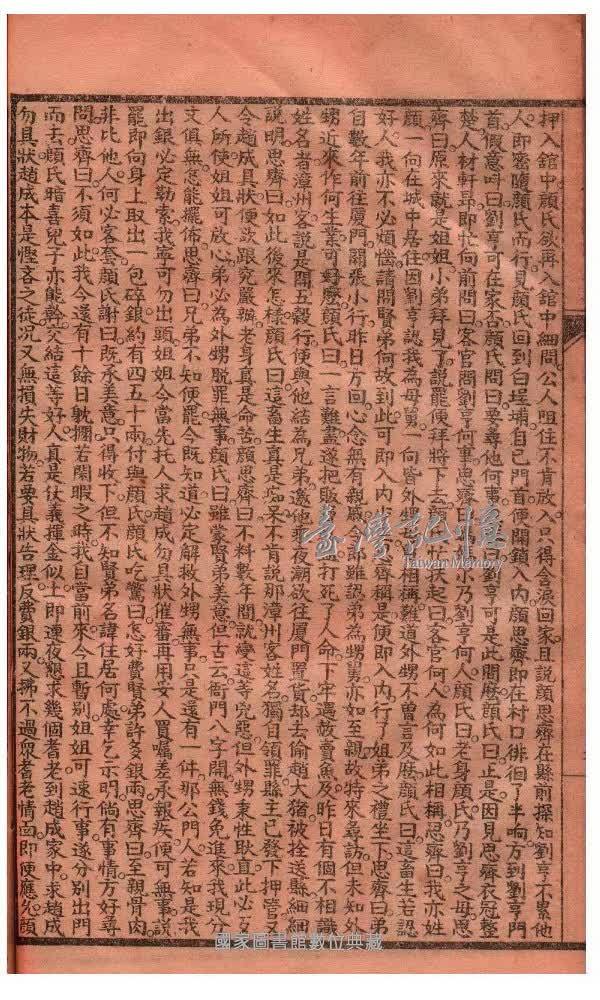 押入舘中顏氏欲再入舘中細問公人咀住不肯放入只得含淚回家且說顏思齊在縣前探知劉亨不累他
人即密隨顏氏而行見顏氏回到白埕埔自己門首便開鎖入內顏思齊即在村口徘徊了半晌方到劉亨門
首假意呌曰劉亨可在家否顏氏問曰要尋他何事 曰劉亨可是此間麽顏氏曰正是因見思齊衣冠整
楚人材軒昂即忙向前問曰客官問劉亨何事思齊曰 小乃劉亨何人顏氏曰老身顏氏乃劉亨之母思
齊曰原來就是姐姐小弟拜見了說罷便拜將下去顏 忙扶起曰客官何人為何如此相稱思齊曰我亦姓
顏一向在城中居住因劉亨認我為母舅一向皆外甥 相稱難道外甥不曾言及麽顏氏曰這畜生若認
好人我亦不必煩惱請問賢弟何故到此可即入內 思齊稱是便即入內行了姐弟之禮坐下思齊曰弟
自數年前往厦門關張小行昨日方回心念無有親戚 雖認弟為甥舅亦如至親故特來尋訪但未知外
甥近來作何生業可好麽顏氏曰一言難盡遂把販 打死了人命下牢遇赦賣魚及昨日有個不相識
姓名者漳州客說是開五穀行便與他結為兄弟邀他 夜潮欲往厦門置貨却去偷趙大猪被拴送縣細細
說明思齊曰如此後來怎樣顏氏曰這畜生真是痴呆不肯說那漳州客姓名獨自領罪縣主已發下押管又
令趙成具狀便欲跟究嚴辦老身真是命苦顏思齊曰不料數年間就變這等兇惡但外甥秉性耿直此必為
人所使姐姐可放心弟必為外甥脫罪無事顏氏曰雖蒙賢弟美意但古云衙門八字開無錢免進來我現分
文俱無怎能擺佈思齊曰兄弟不知便罷今既知道必定解救外甥無事只是還有一件那公門人若知是我
出銀必定勒索我寧可勿出頭姐姐今當先托人求趙成勿具狀催審再用妥人買囑差承報疾便可無事說
罷即向身上取出一包碎銀約有四五十兩付與顏氏顏氏吃驚曰怎好費賢弟許多銀兩思齊曰至親骨肉
非比他人何必客套顏氏謝曰既承美意只得收下但不知賢弟名諱住居何處幸乞示明倘有事情方好尋
問思齊曰不須如此我今還有十餘日躭擱若閑暇之時我自當前來今且暫别姐姐可速行事遂分别出門
而去顏氏暗喜兒子亦能幹交結這等好人真是仗義揮金似土即連夜懇求幾個耆老到趙成家中求趙成
勿具狀趙成本是慳吝之徒況又無損失財物若要具狀告理反費銀兩又拂不過眾耆老情面即便應允顏
臺灣記憶
Taiwan Memory
國家圖書館數位典藏